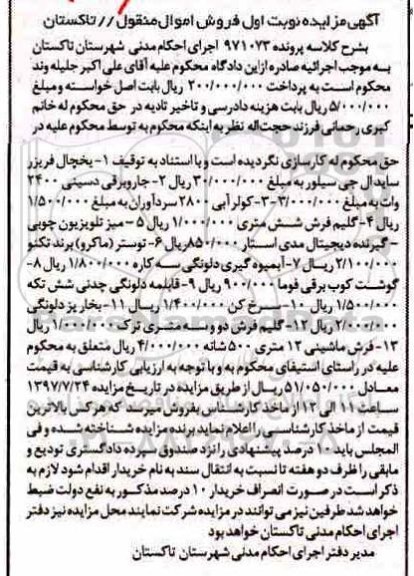 آگهی مزایده نوبت اول فروش اموال منقول // تاکستان
بشرح کلاسه پرونده ۹۷۱۰۷۳ اجرای احکام مدنی شهرستان تاکستان
به موجب اجرائیه صادره از این دادگاه محکوم علیه آقای علی اکبر جلیله وند
محکوم است به پرداخت ۲۰۰/۰۰۰/۰۰۰ ریال بابت اصل خواسته و مبلغ
۵/۰۰۰/۰۰۰ ریال بابت هزینه دادرسی و تاخیر تادیه در حق محکوم له خانم
کبری رحمانی فرزند حجت اله نظر به اینکه محکوم به توسط محکوم علیه در
حق محکوم له کارسازی نگردیده است و با استناد به توقیف ۱- یخچال فریزر
ساید ال جی سیلور به مبلغ ۳۰/۰۰۰/۰۰۰ ریال ۲- جاروبرقی دسینی ۲۴۰۰
وات به مبلغ ۳/۰۰۰/۰۰۰-۳- کولر آبی ۲۸۰۰ سردآوران به مبلغ ۱/۵۰۰/۰۰۰
ریال ۴- گلیم فرش شش متری ۱/۰۰۰/۰۰۰ ریال ۵ – میز تلویزیون چوبی
– گیرنده دیجیتال مدی استار ۸۵۰/۰۰۰ ریال ۶- توستر (ماکرو) برند تکنو
۲/۱۰۰/۰۰۰ ریال ۷- آبمیوه گیری دلونگی سه کاره ۱/۸۰۰/۰۰۰ ریال ۸-
گوشت کوب برقی فوما ۹۰۰/۰۰۰ ریال ۹- قابلمه دلونگی چدنی شش تکه
۱/۵۰۰/۰۰۰ ریال ۱۰- سرخ کن ۱/۴۰۰/۰۰۰ ریال ۱۱- بخارپز دلونگی
۲/۰۰۰/۰۰۰ ریال ۱۲- گلیم فرش دو و سه متری ترک ۱/۰۰۰/۰۰۰ ریال
۱۳- فرش ماشینی ۱۲ متری ۵۰۰ شانه ۴/۰۰۰/۰۰۰ ریال متعلق به محکوم
علیه در راستای استیفای محکوم به و با توجه به ارزیابی کارشناسی به قیمت
معادل ۵۱/۰۵۰/۰۰۰ ریال از طریق مزایده در تاریخ مزایده ۱۳۹۷/۷/۲۴
ساعت ۱۱ الی ۱۲ از ماخذ کارشناس بفروش میرسد که هر کس بالاترین
قیمت از ماخذ کارشناسی را اعلام نماید برنده مزایده شناخته شده و فی
المجلس باید ۱۰ درصد پیشنهادی را نزد صندوق سپرده دادگستری تودیع و
مابقی را ظرف دو هفته تا نسبت به انتقال سند به نام خریدار اقدام شود لازم به
ذکر است در صورت انصراف خریدار ۱۰ درصد مذکور به نفع دولت ضبط
خواهد شد طرفین نیز می توانند در مزایده شرکت نمایند محل مزایده نیز دفتر
اجرای احکام مدنی تاکستان خواهد بود
مدیر دفتر اجرای احکام مدنی شهرستان تاکستان